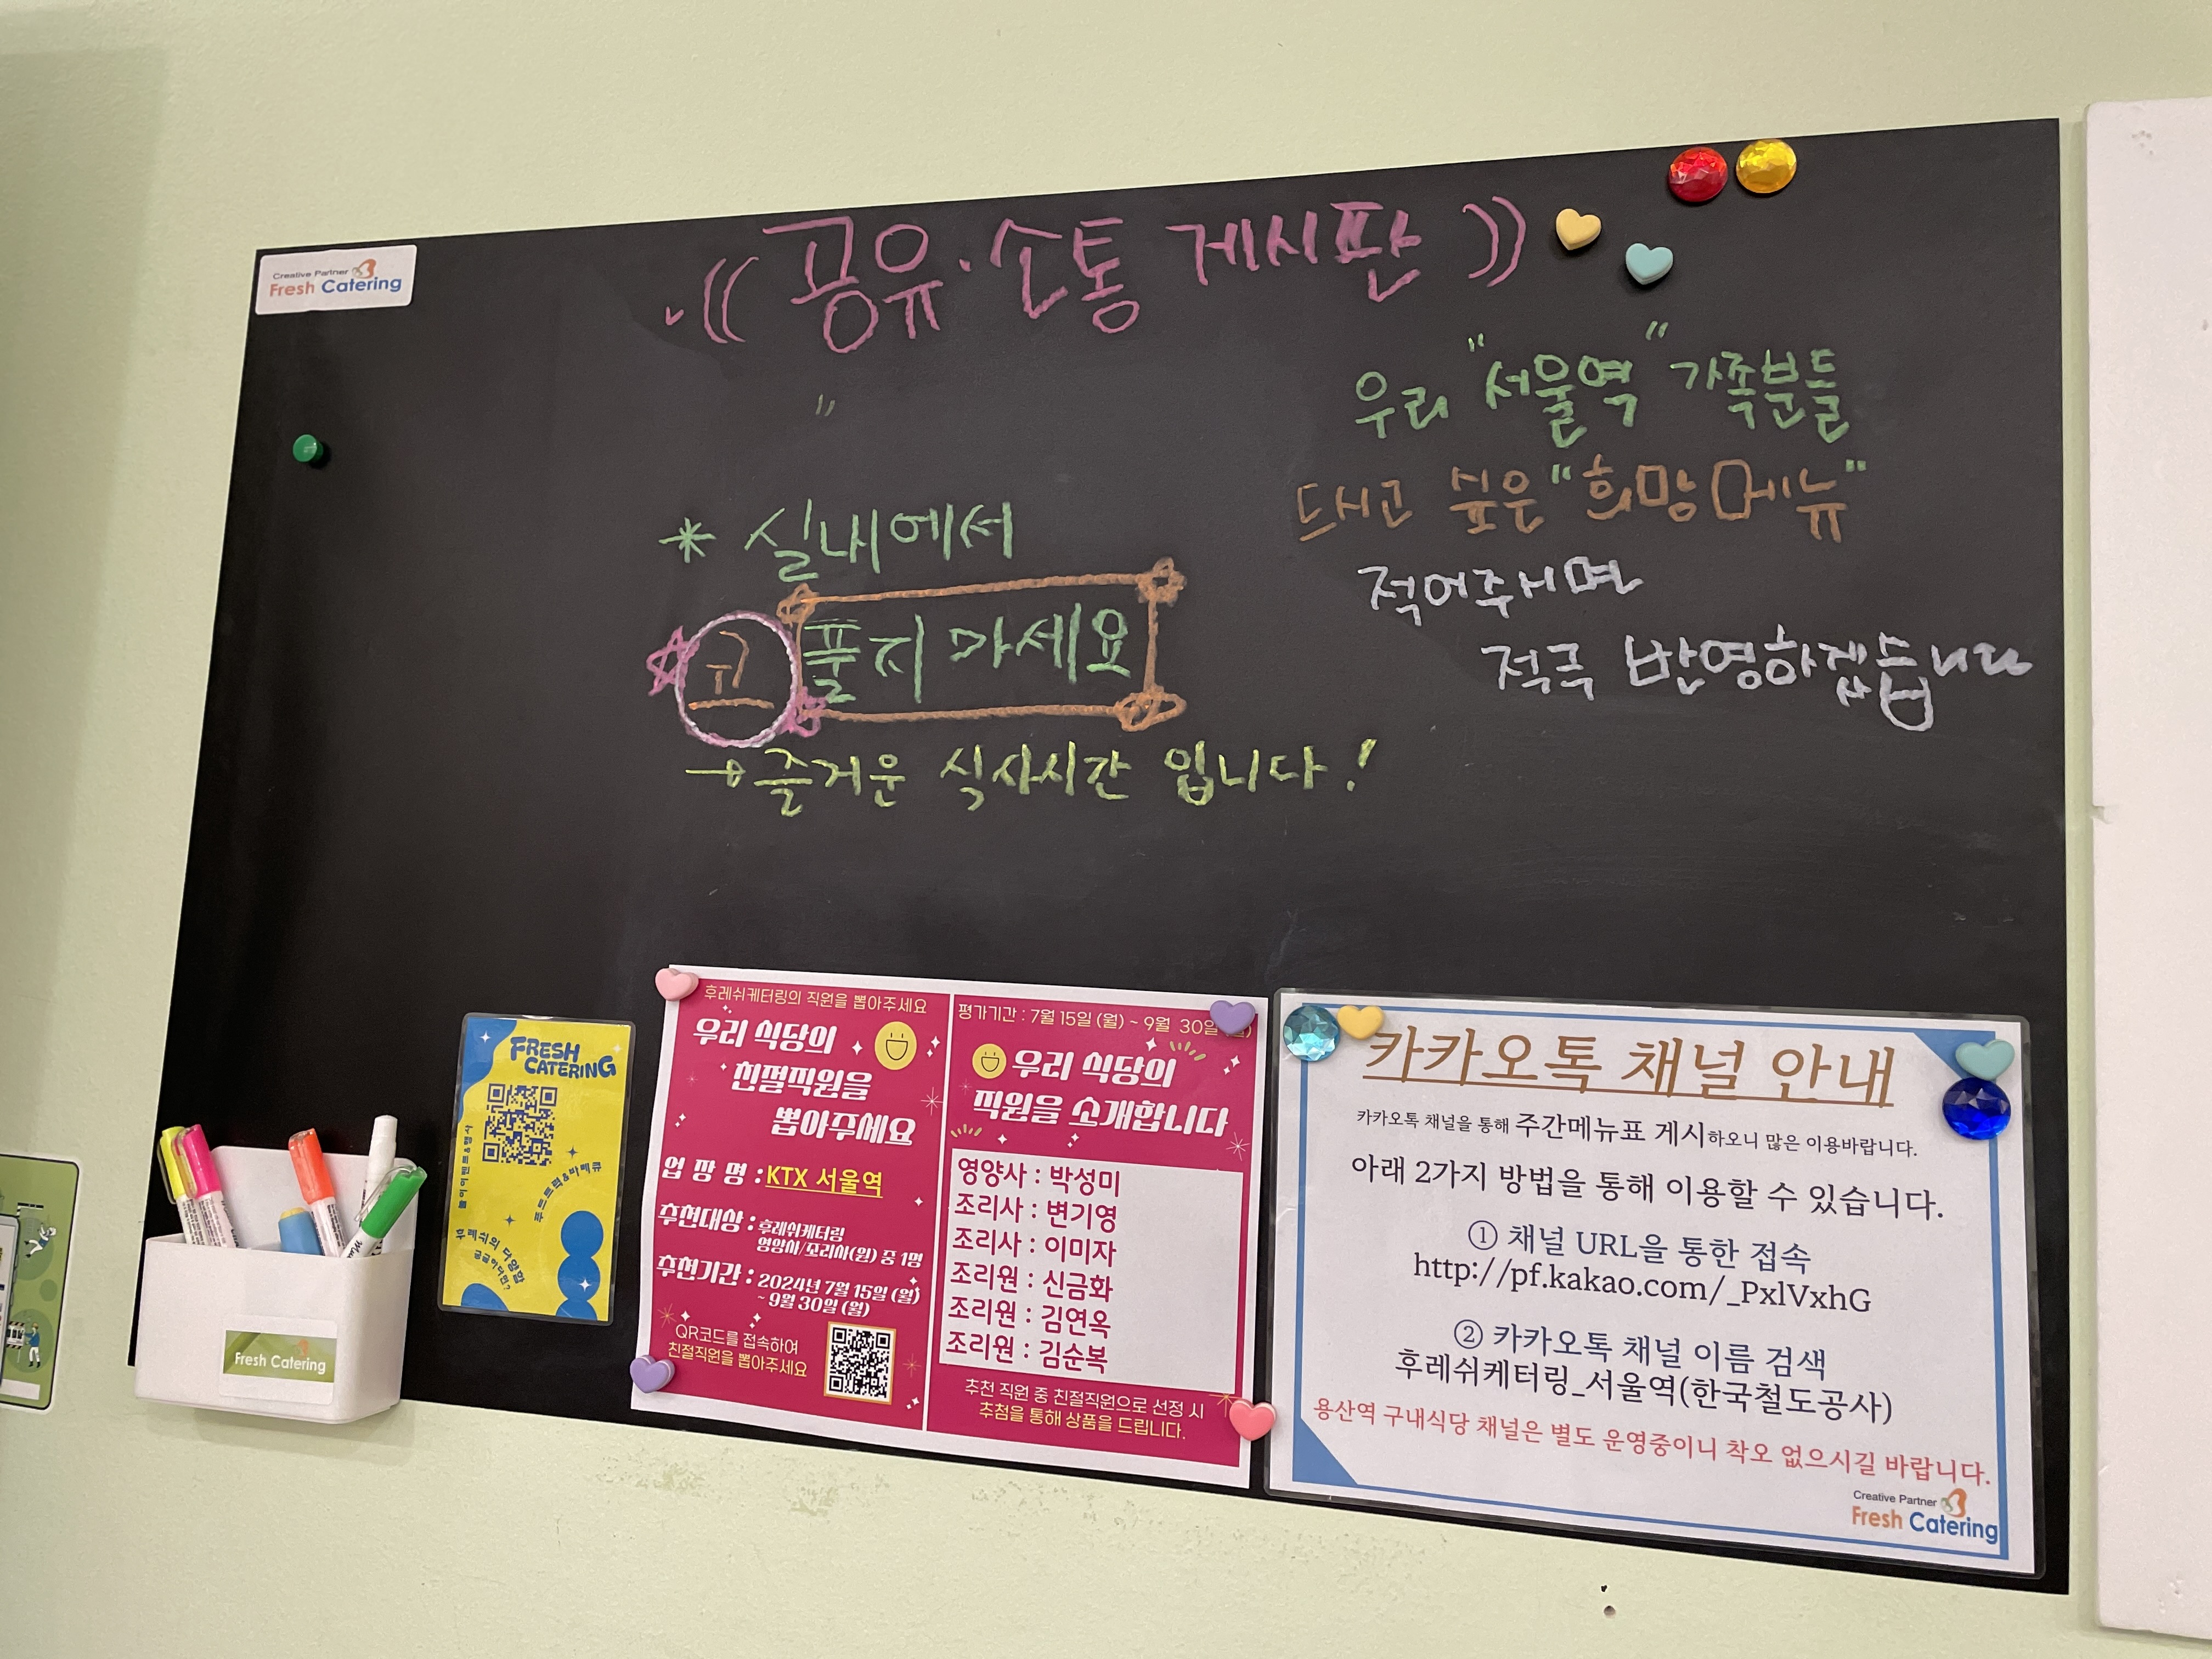 Creative Partner
Fresh Catering
((공유·소통 게시판))
우리 "서울역" 가족분들
드시고 싶은 "희망메뉴"
적어주시면
적극 반영하겠습니다
* 실내에서
코 풀지 마세요
→ 즐거운 식사시간 입니다!
FRESH
CATERING
푸드트럭&바베큐
후레쉬케터링의 직원을 뽑아주세요
우리 식당의
친절직원을
뽑아주세요
업 장 명 : KTX 서울역
추천대상 : 후레쉬케터링
영양사/조리사(원) 중 1명
추천기간 : 2024년 7월 15일 (월)
~ 9월 30일 (월)
QR코드를 접속하여
친절직원을 뽑아주세요
평가기간 : 7월 15일 (월) ~ 9월 30일
우리 식당의
직원을 소개합니다
영양사 : 박성미
조리사 : 변기영
조리사 : 이미자
조리원 : 신금화
조리원 : 김연옥
조리원 : 김순복
추천 직원 중 친절직원으로 선정 시
추첨을 통해 상품을 드립니다.
카카오톡 채널 안내
카카오톡 채널을 통해 주간메뉴표 게시하오니 많은 이용바랍니다.
아래 2가지 방법을 통해 이용할 수 있습니다.
① 채널 URL을 통한 접속
http://pf.kakao.com/_PxlVxhG
② 카카오톡 채널 이름 검색
후레쉬케터링_서울역(한국철도공사)
용산역 구내식당 채널은 별도 운영중이니 착오 없으시길 바랍니다.
Creative Partner
Fresh Catering
Fresh Catering